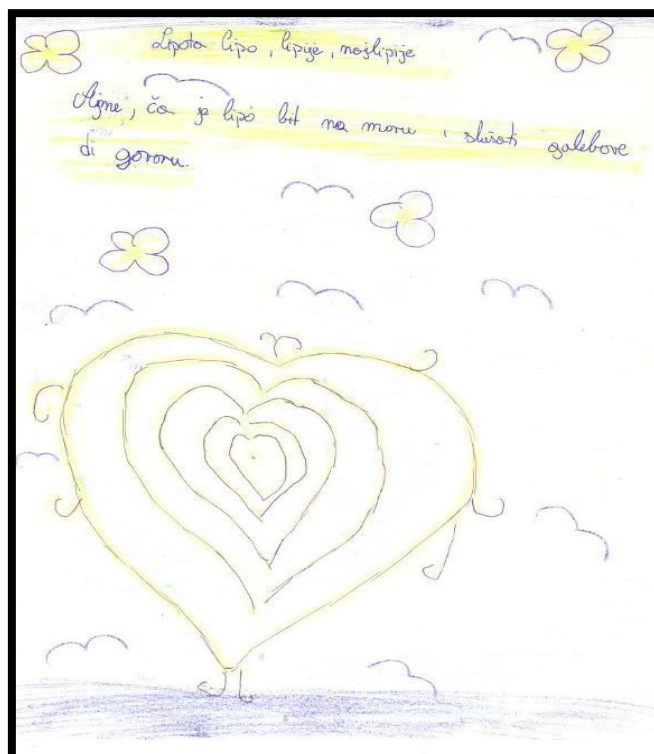 Lipota lipo, lipije, najlipije
Ajme, ča je lipo bit na moru i slušati galebove
di govoru.